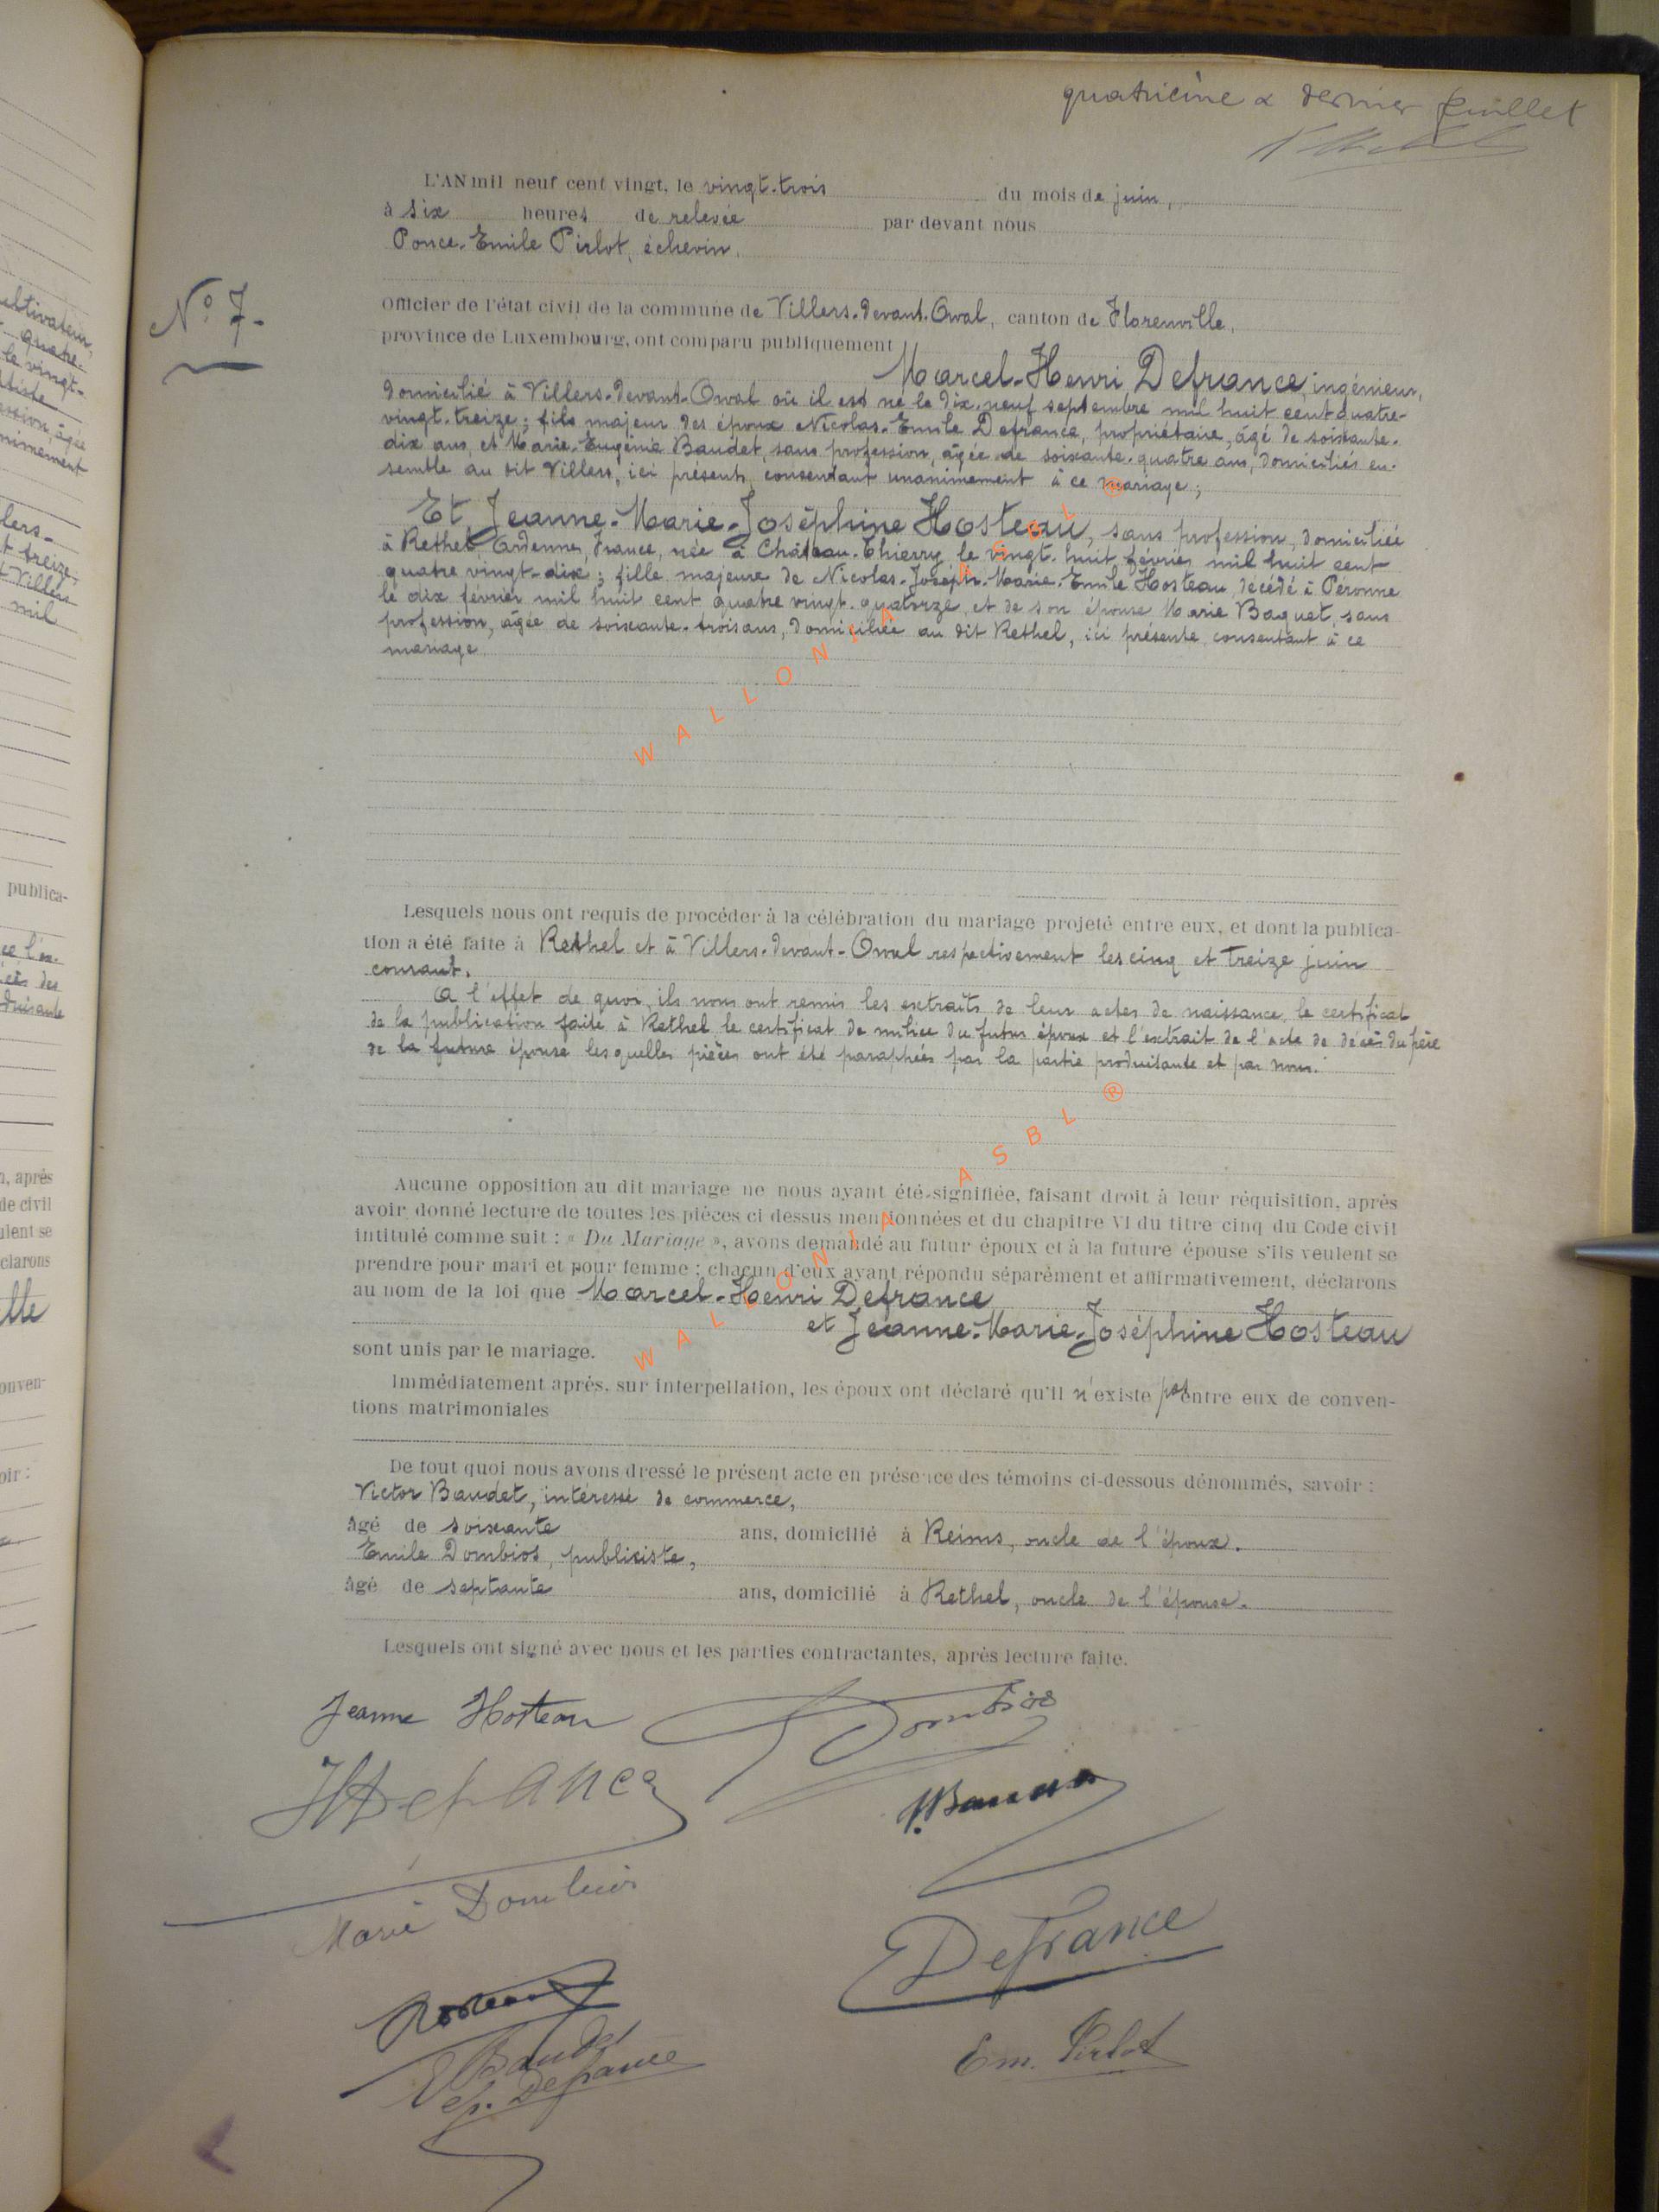 quatrième & dernier feuillet
L'AN mil neuf cent vingt, le vingt-trois du mois de juin,
à six heures de relevée par devant nous
Ponce-Emile Pirlot, échevin,
N° 7-
officier de l'état civil de la commune de Villers-devant-Orval, canton de Florenville,
province de Luxembourg, ont comparu publiquement
Marcel-Henri Defrance, ingénieur,
domicilié à Villers-devant-Orval où il est né le dix-neuf septembre mil huit cent quatre-
vingt-treize; fils majeur des époux Nicolas-Emile Defrance, propriétaire, âgé de soixante-
dix ans, et Marie-Eugénie Baudet, sans profession, âgée de soixante-quatre ans, domiciliés en-
semble au dit Villers, ici présents, consentant unanimement à ce mariage;
Et Jeanne-Marie-Joséphine Hosteau, sans profession, domiciliée
à Rethel, Ardenne, France, née à Château-Thierry, le vingt-huit février mil huit cent
quatre vingt-dix; fille majeure de Nicolas-Joseph-Marie-Emile Hosteau, décédé à Péronne
le dix février mil huit cent quatre vingt-quatorze, et de son épouse Marie Baquet, sans
profession, âgée de soixante-trois ans, domiciliée au dit Rethel, ici présente, consentant à ce
mariage.
WALLONIA ASBL ®
Lesquels nous ont requis de procéder à la célébration du mariage projeté entre eux, et dont la publica-
tion a été faite à Rethel et à Villers-devant-Orval respectivement les cinq et treize juin
courant.
A l'effet de quoi, ils nous ont remis les extraits de leur actes de naissance, le certificat
de la publication faite à Rethel le certificat de milice du futur époux et l'extrait de l'acte de décès du père
de la future épouse lesquelles pièces ont été paraphées par la partie produisante et par nous.
WALLONIA ASBL ®
Aucune opposition au dit mariage ne nous ayant été signifiée, faisant droit à leur réquisition, après
avoir donné lecture de toutes les pièces ci dessus mentionnées et du chapitre VI du titre cinq du Code civil
intitulé comme suit : « Du Mariage », avons demandé au futur époux et à la future épouse s'ils veulent se
prendre pour mari et pour femme ; chacun d'eux ayant répondu séparément et affirmativement, déclarons
au nom de la loi que Marcel-Henri Defrance
et Jeanne-Marie-Joséphine Hosteau
sont unis par le mariage.
Immédiatement après, sur interpellation, les époux ont déclaré qu'il n'existe pas entre eux de conven-
tions matrimoniales
De tout quoi nous avons dressé le présent acte en présence des témoins ci-dessous dénommés, savoir :
Victor Baudet, intéressé de commerce,
âgé de soixante ans, domicilié à Reims, oncle de l'époux.
Emile Dombios, publiciste,
âgé de septante ans, domicilié à Rethel, oncle de l'épouse.
Lesquels ont signé avec nous et les parties contractantes, après lecture faite.
Jeanne Hosteau
Dombios
Defrance
Marie
E Defrance
E Baudet
ep. Defrance
Em. Pirlot